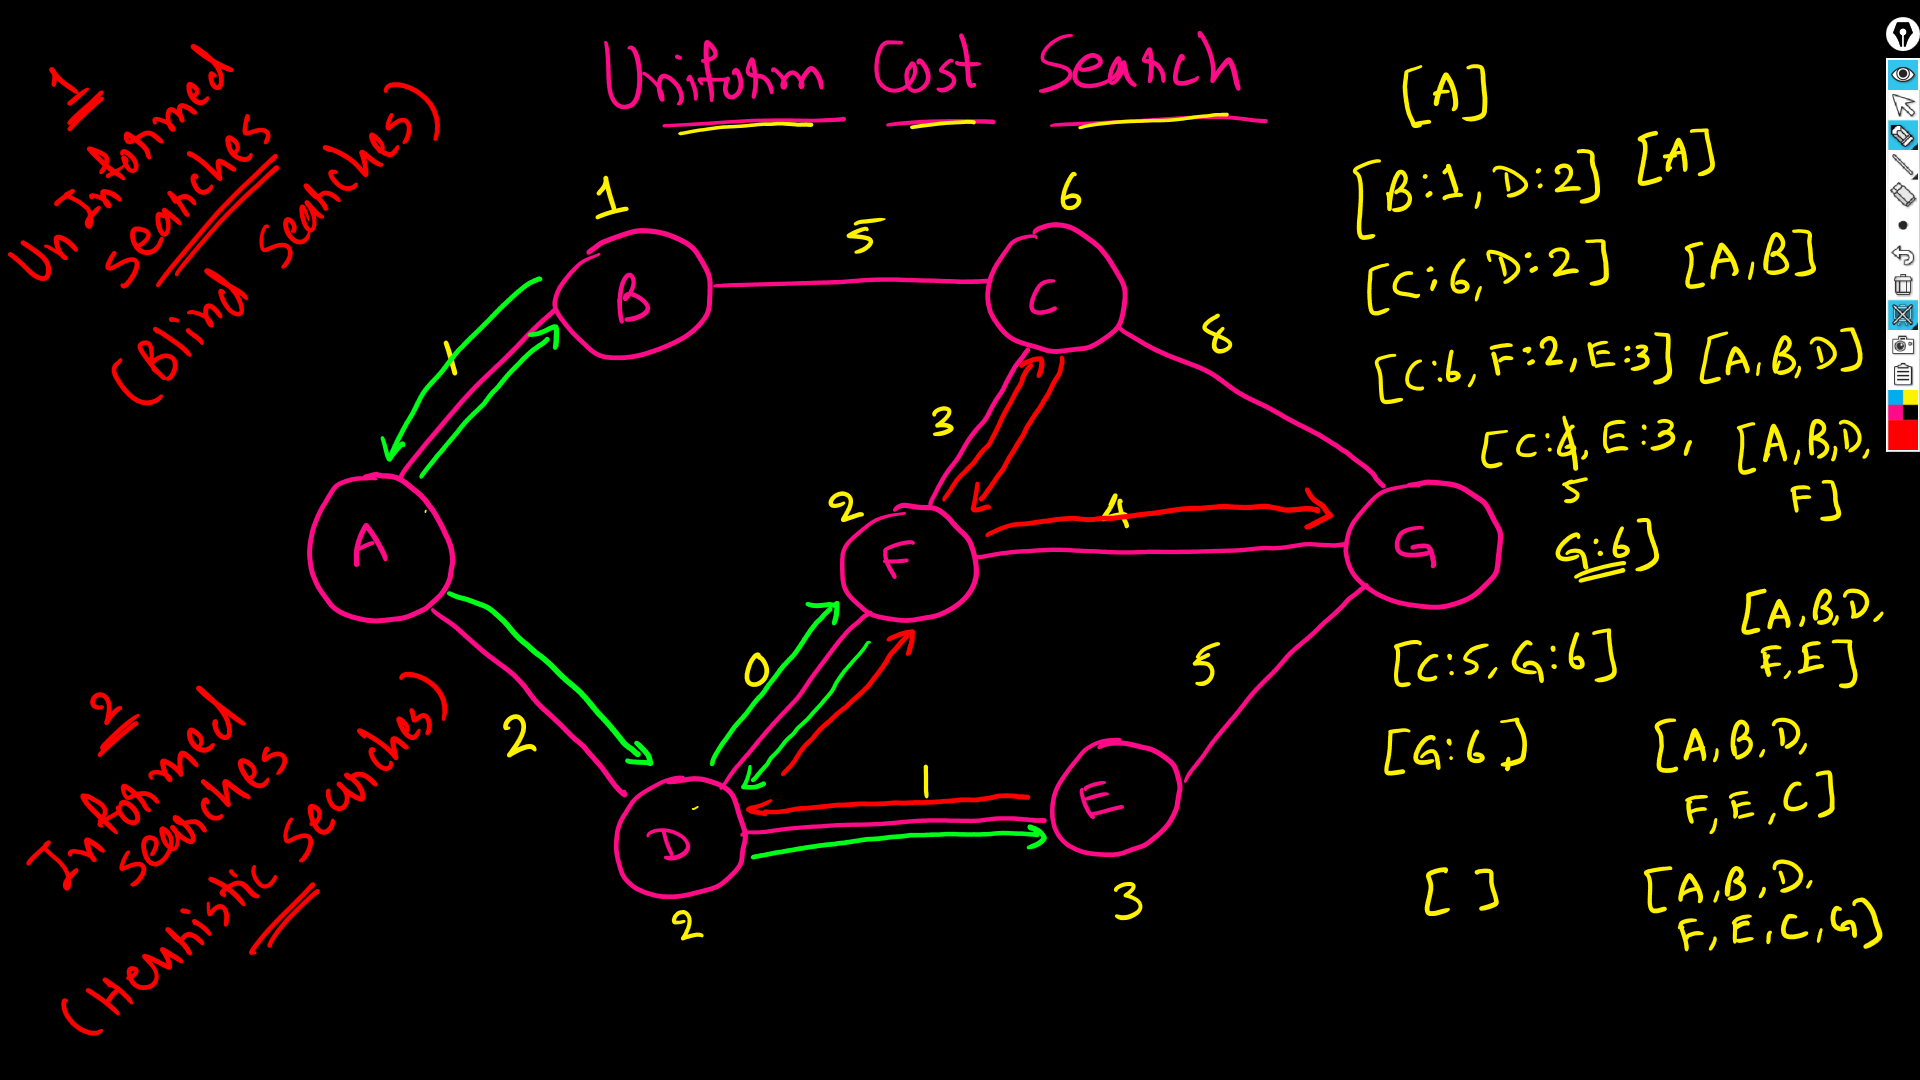 Uniform Cost Search
1
Un Informed
searches
(Blind Searches)
2
Informed
searches
(Heuristic Searches)
1
6
B
5
C
1
8
3
2
4
A
F
G
0
5
2
1
E
D
3
2
[A]
[B:1, D:2] [A]
[C:6, D:2] [A,B]
[C:6, F:2, E:3] [A,B,D]
[C:6, E:3, [A,B,D,
5 F]
G:6]
[A,B,D,
[C:5, G:6] F,E]
[G:6,] [A,B,D,
F,E,C]
[ ] [A,B,D,
F,E,C,G]